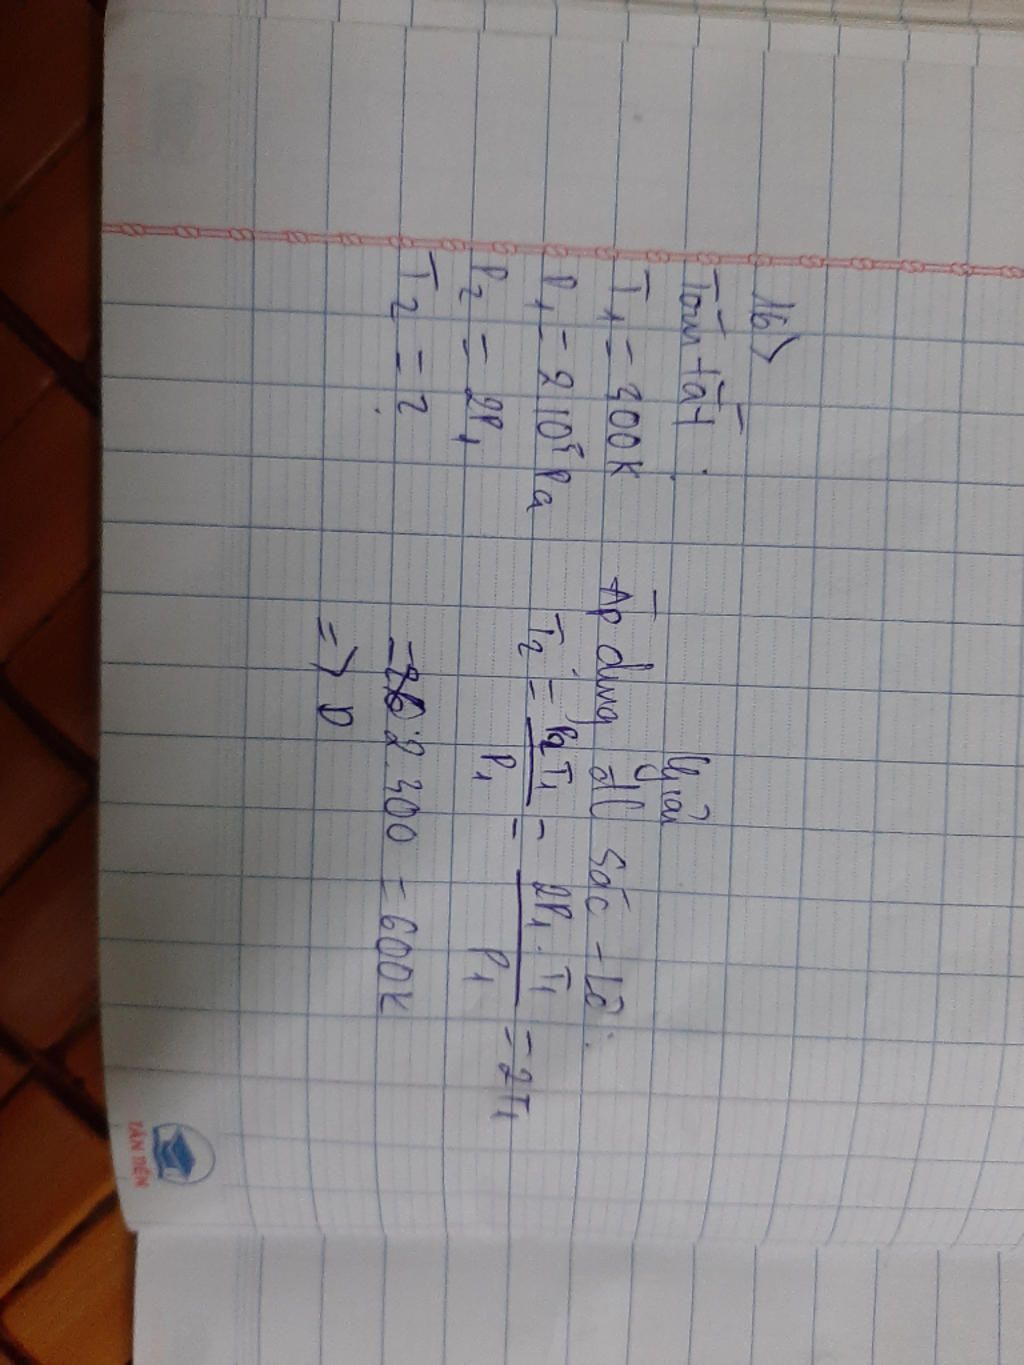 16>
Tóm tắt.
T₁ = 300K
P₁ = 2 10⁵ Pa
P₂ = 2P₁
T₂ = ?
Giải
Áp dụng đl Sác-lơ:
T₂ = P₂T₁/P₁ = 2P₁.T₁/P₁ = 2T₁
= 2.300 = 600K
=> D
TÂN TIẾN